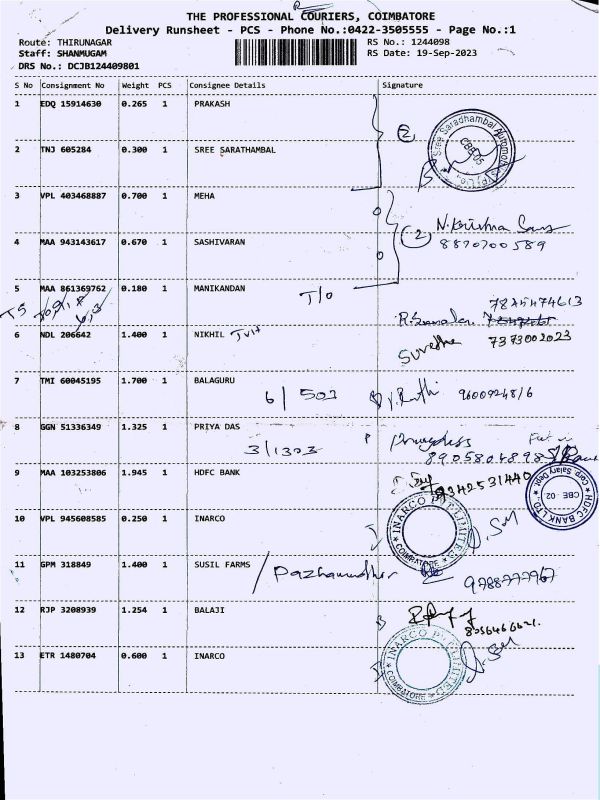 THE PROFESSIONAL COURIERS, COIMBATORE
Delivery Runsheet - PCS - Phone No.:0422-3505555 - Page No.:1
Route: THIRUNAGAR RS No.: 1244098
Staff: SHANMUGAM RS Date: 19-Sep-2023
DRS No.: DCJB124409801
S No Consignment No Weight PCS Consignee Details Signature
1 EDQ 15914630 0.265 1 PRAKASH
2 TNJ 605284 0.300 1 SREE SARATHAMBAL
2
Sree Saradhambal Automot
3 VPL 403468887 0.700 1 MEHA
4 MAA 943143617 0.670 1 SASHIVARAN
2
N.Krishna
8870700589
5 MAA 861369762 0.180 1 MANIKANDAN
T/0
7845474613
6 NDL 206642 1.400 1 NIKHIL
7373002023
7 TMI 60045195 1.700 1 BALAGURU
6/503
8 GGN 51336349 1.325 1 PRIYA DAS
3/1303
9 MAA 103253806 1.945 1 HDFC BANK
9342531440
HDFC BANK LTD.
Corp. Salary Dept.
CBE - 02
10 VPL 945608585 0.250 1 INARCO
INARCO PVT LIMITED
COIMBATORE
11 GPM 318849 1.400 1 SUSIL FARMS
12 RJP 3208939 1.254 1 BALAJI
13 ETR 1480704 0.600 1 INARCO
INARCO PVT LIMITED
COIMBATORE